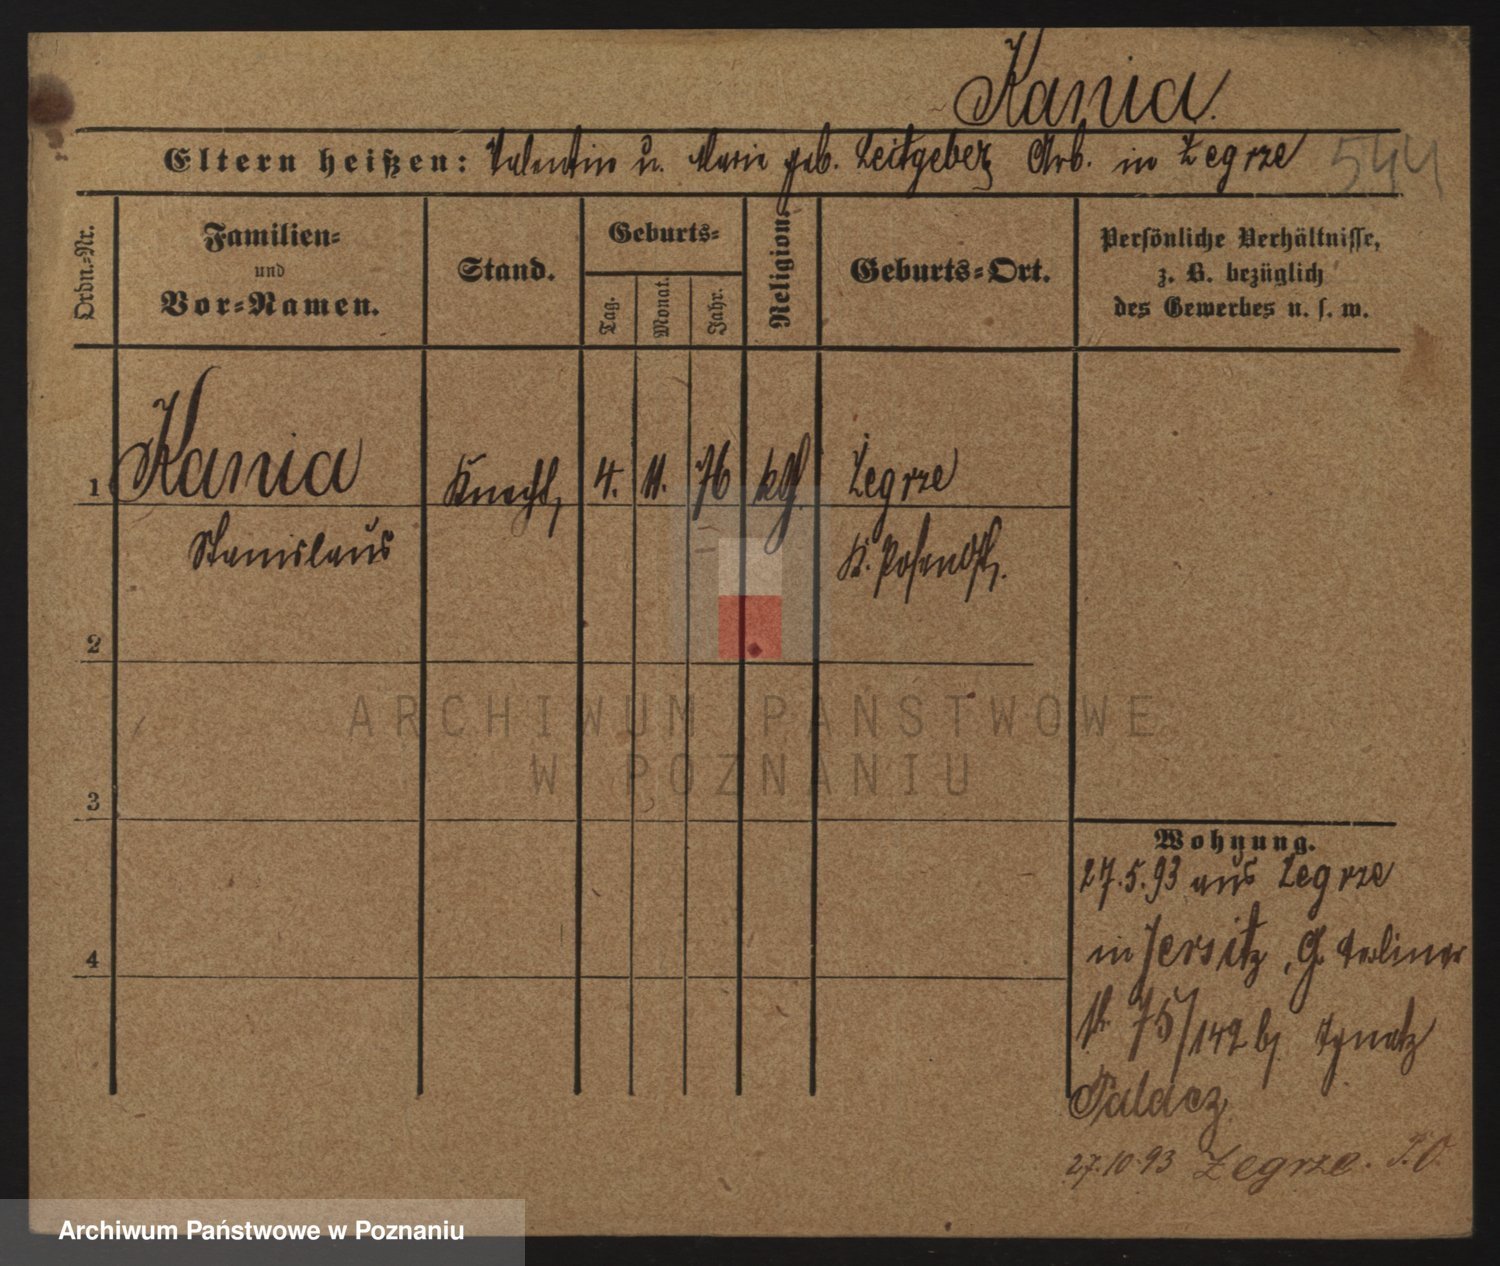 Kania.
Eltern heißen: Valentin u. Marie geb. Leitgeber Arb. in Zegrze 544
Ordn.-Nr.
Familien-
und
Vor-Namen.
Stand.
Geburts-
Tag.
Monat.
Jahr.
Religion.
Geburts-Ort.
Persönliche Verhältnisse,
z. B. bezüglich
des Gewerbes u. s. w.
1 Kania Knecht, 4. 11. 76 kth. Zegrze
Stanislaus K. Posen Ost.
2
ARCHIWUM PAŃSTWOWE
W POZNANIU
3
4
Wohnung.
27.5.93 aus Zegrze
in Jersitz, G. Berliner
St. 75/149 bj Ignatz
Palacz
27.10.93 Zegrze. P.O.
Archiwum Państwowe w Poznaniu